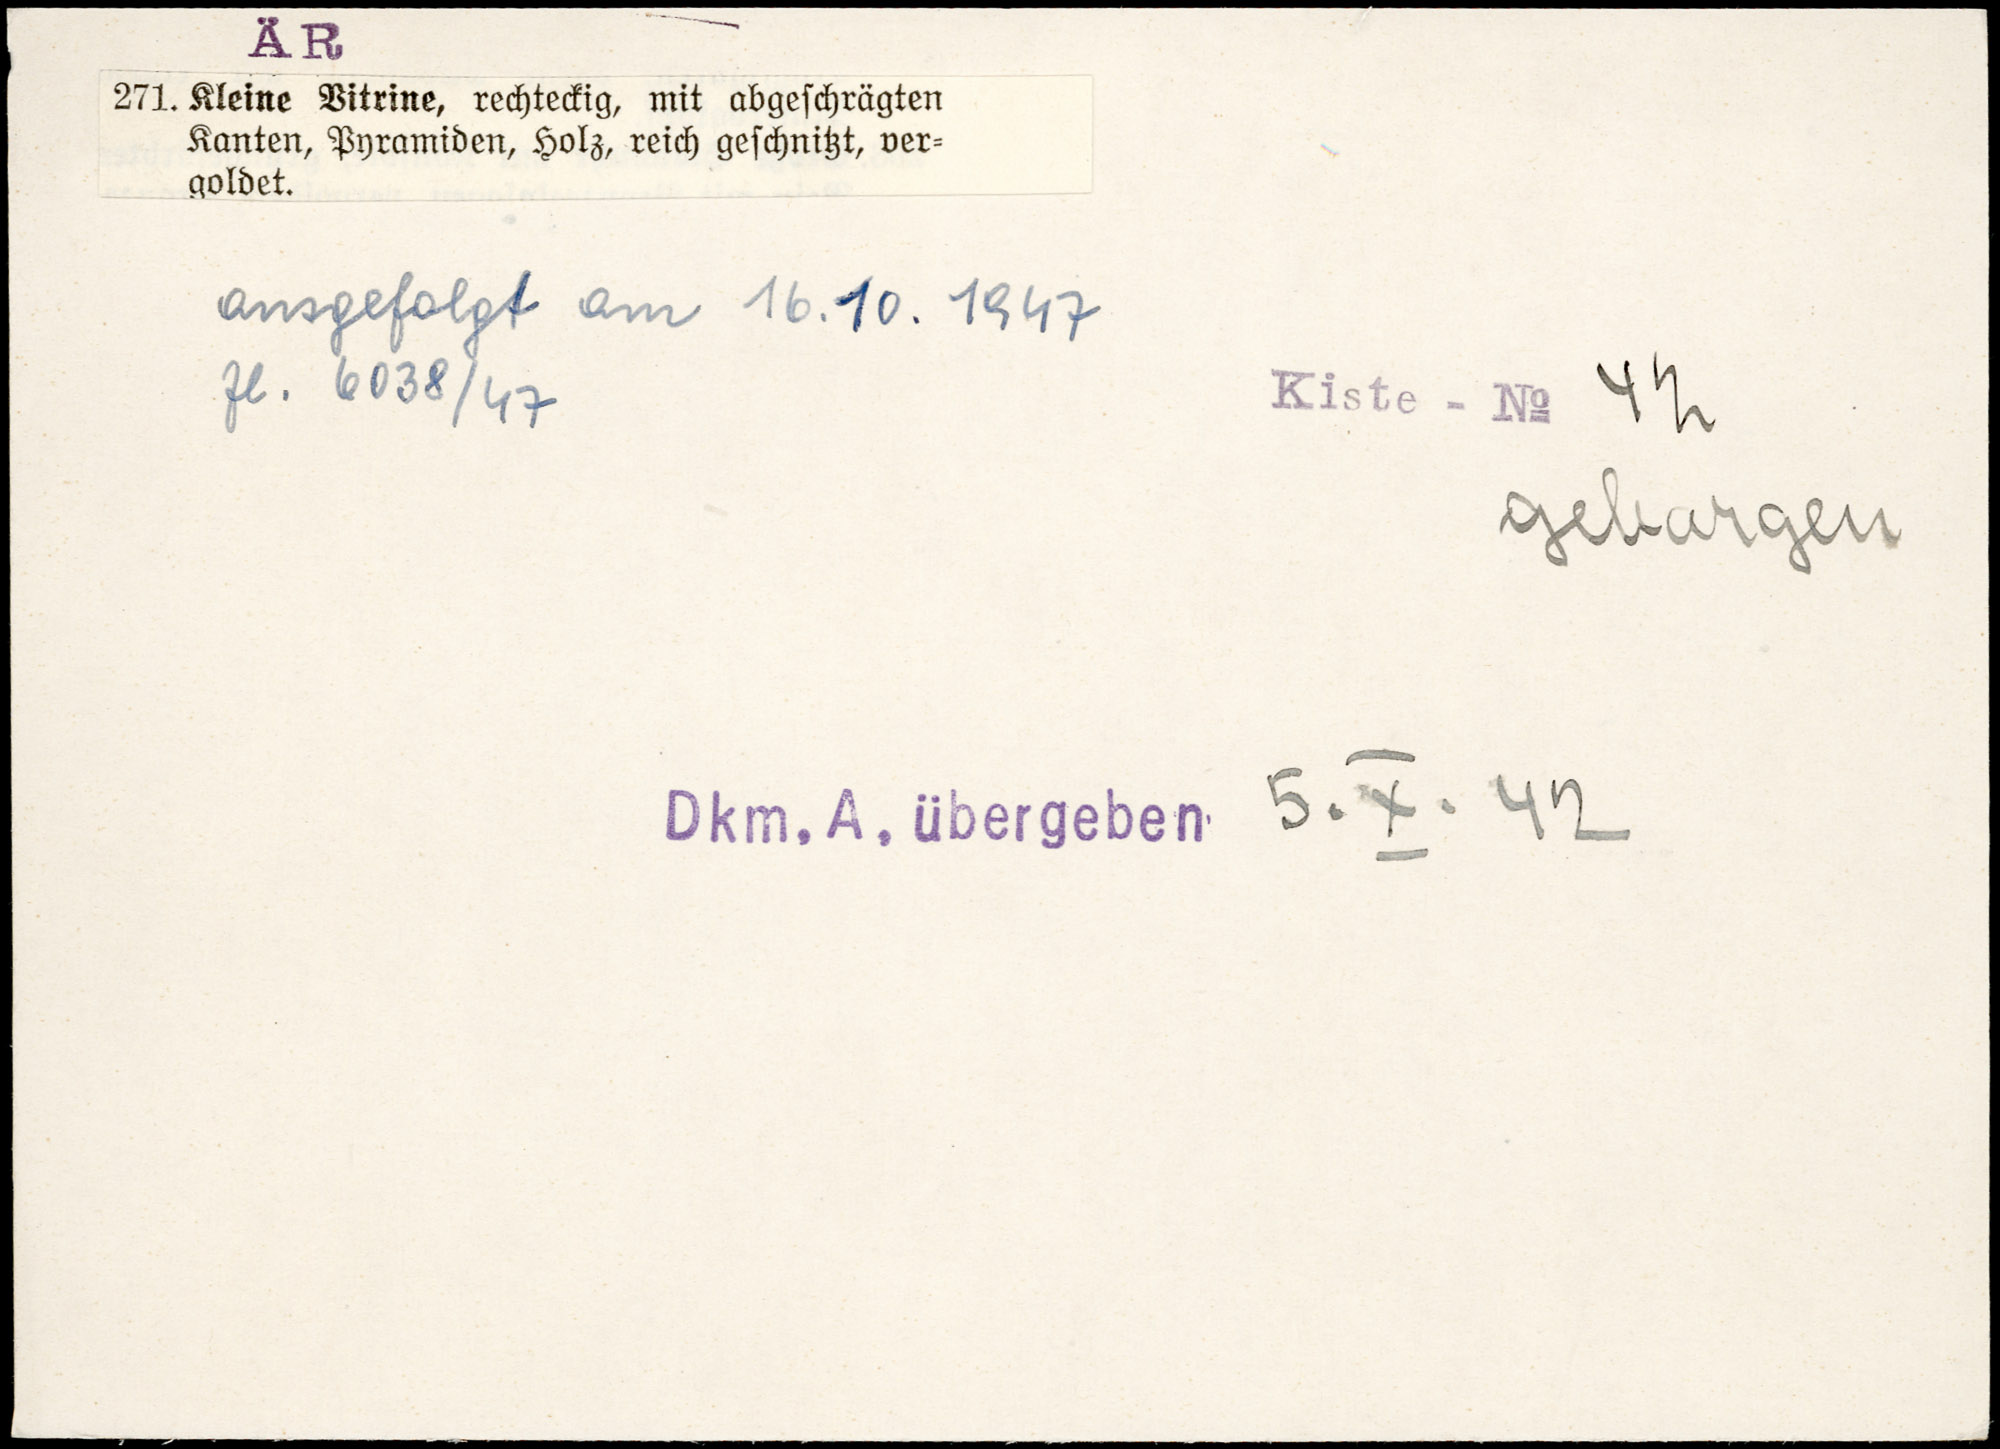 ÄR
271. Kleine Vitrine, rechteckig, mit abgeschrägten
Kanten, Pyramiden, Holz, reich geschnitzt, ver-
goldet.
ausgefolgt am 16.10.1947
Zl. 6038/47
Kiste - № 42
geborgen
Dkm. A. übergeben 5.X.42